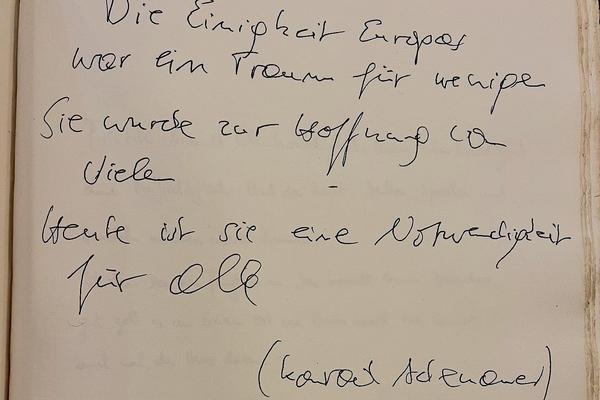 Die Einigkeit Europas
war ein Traum für wenige
Sie wurde zur Hoffnung von
Vielen
Heute ist sie eine Notwendigkeit
für alle
(Konrad Adenauer)